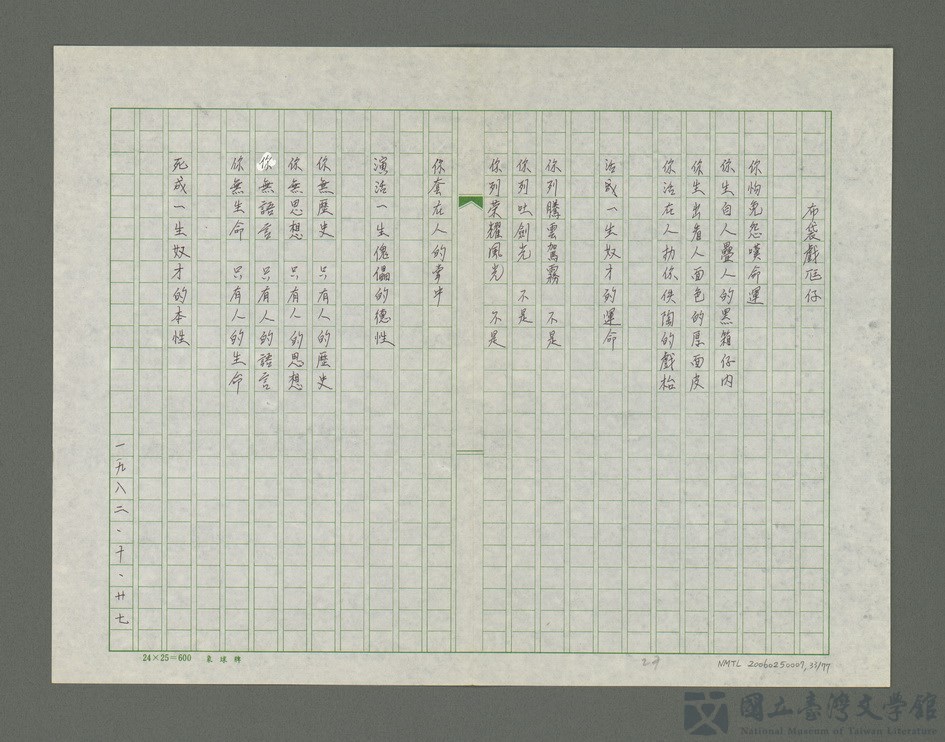 布袋戲尪仔
你怐免怨嘆命運
你生自人疊人的黑箱仔內
你生出看人面色的厚面皮
你活在人扐你佚陶的戲枱
活成一生奴才的運命
你列騰雲駕霧 不是
你列吐劍光 不是
你列荣耀風光 不是
你套在人的掌中
演活一生傀儡的德性
你無歷史 只有人的歷史
你無思想 只有人的思想
你無語言 只有人的語言
你無生命 只有人的生命
死成一生奴才的本性
一九八二、十、廿七
24×25=600
29
NMTL 20060250007, 33/77
國立臺灣文學館
National Museum of Taiwan Literature